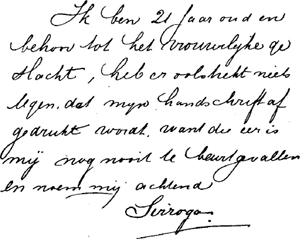 Ik ben 21 Jaar oud en
behoor tot het vrouwelijke ge
slacht, heb er volstrekt niets
tegen, dat mijn handschrift af
gedrukt wordt, want die eer is
mij nog nooit te beurt gevallen
en noem mij achtend